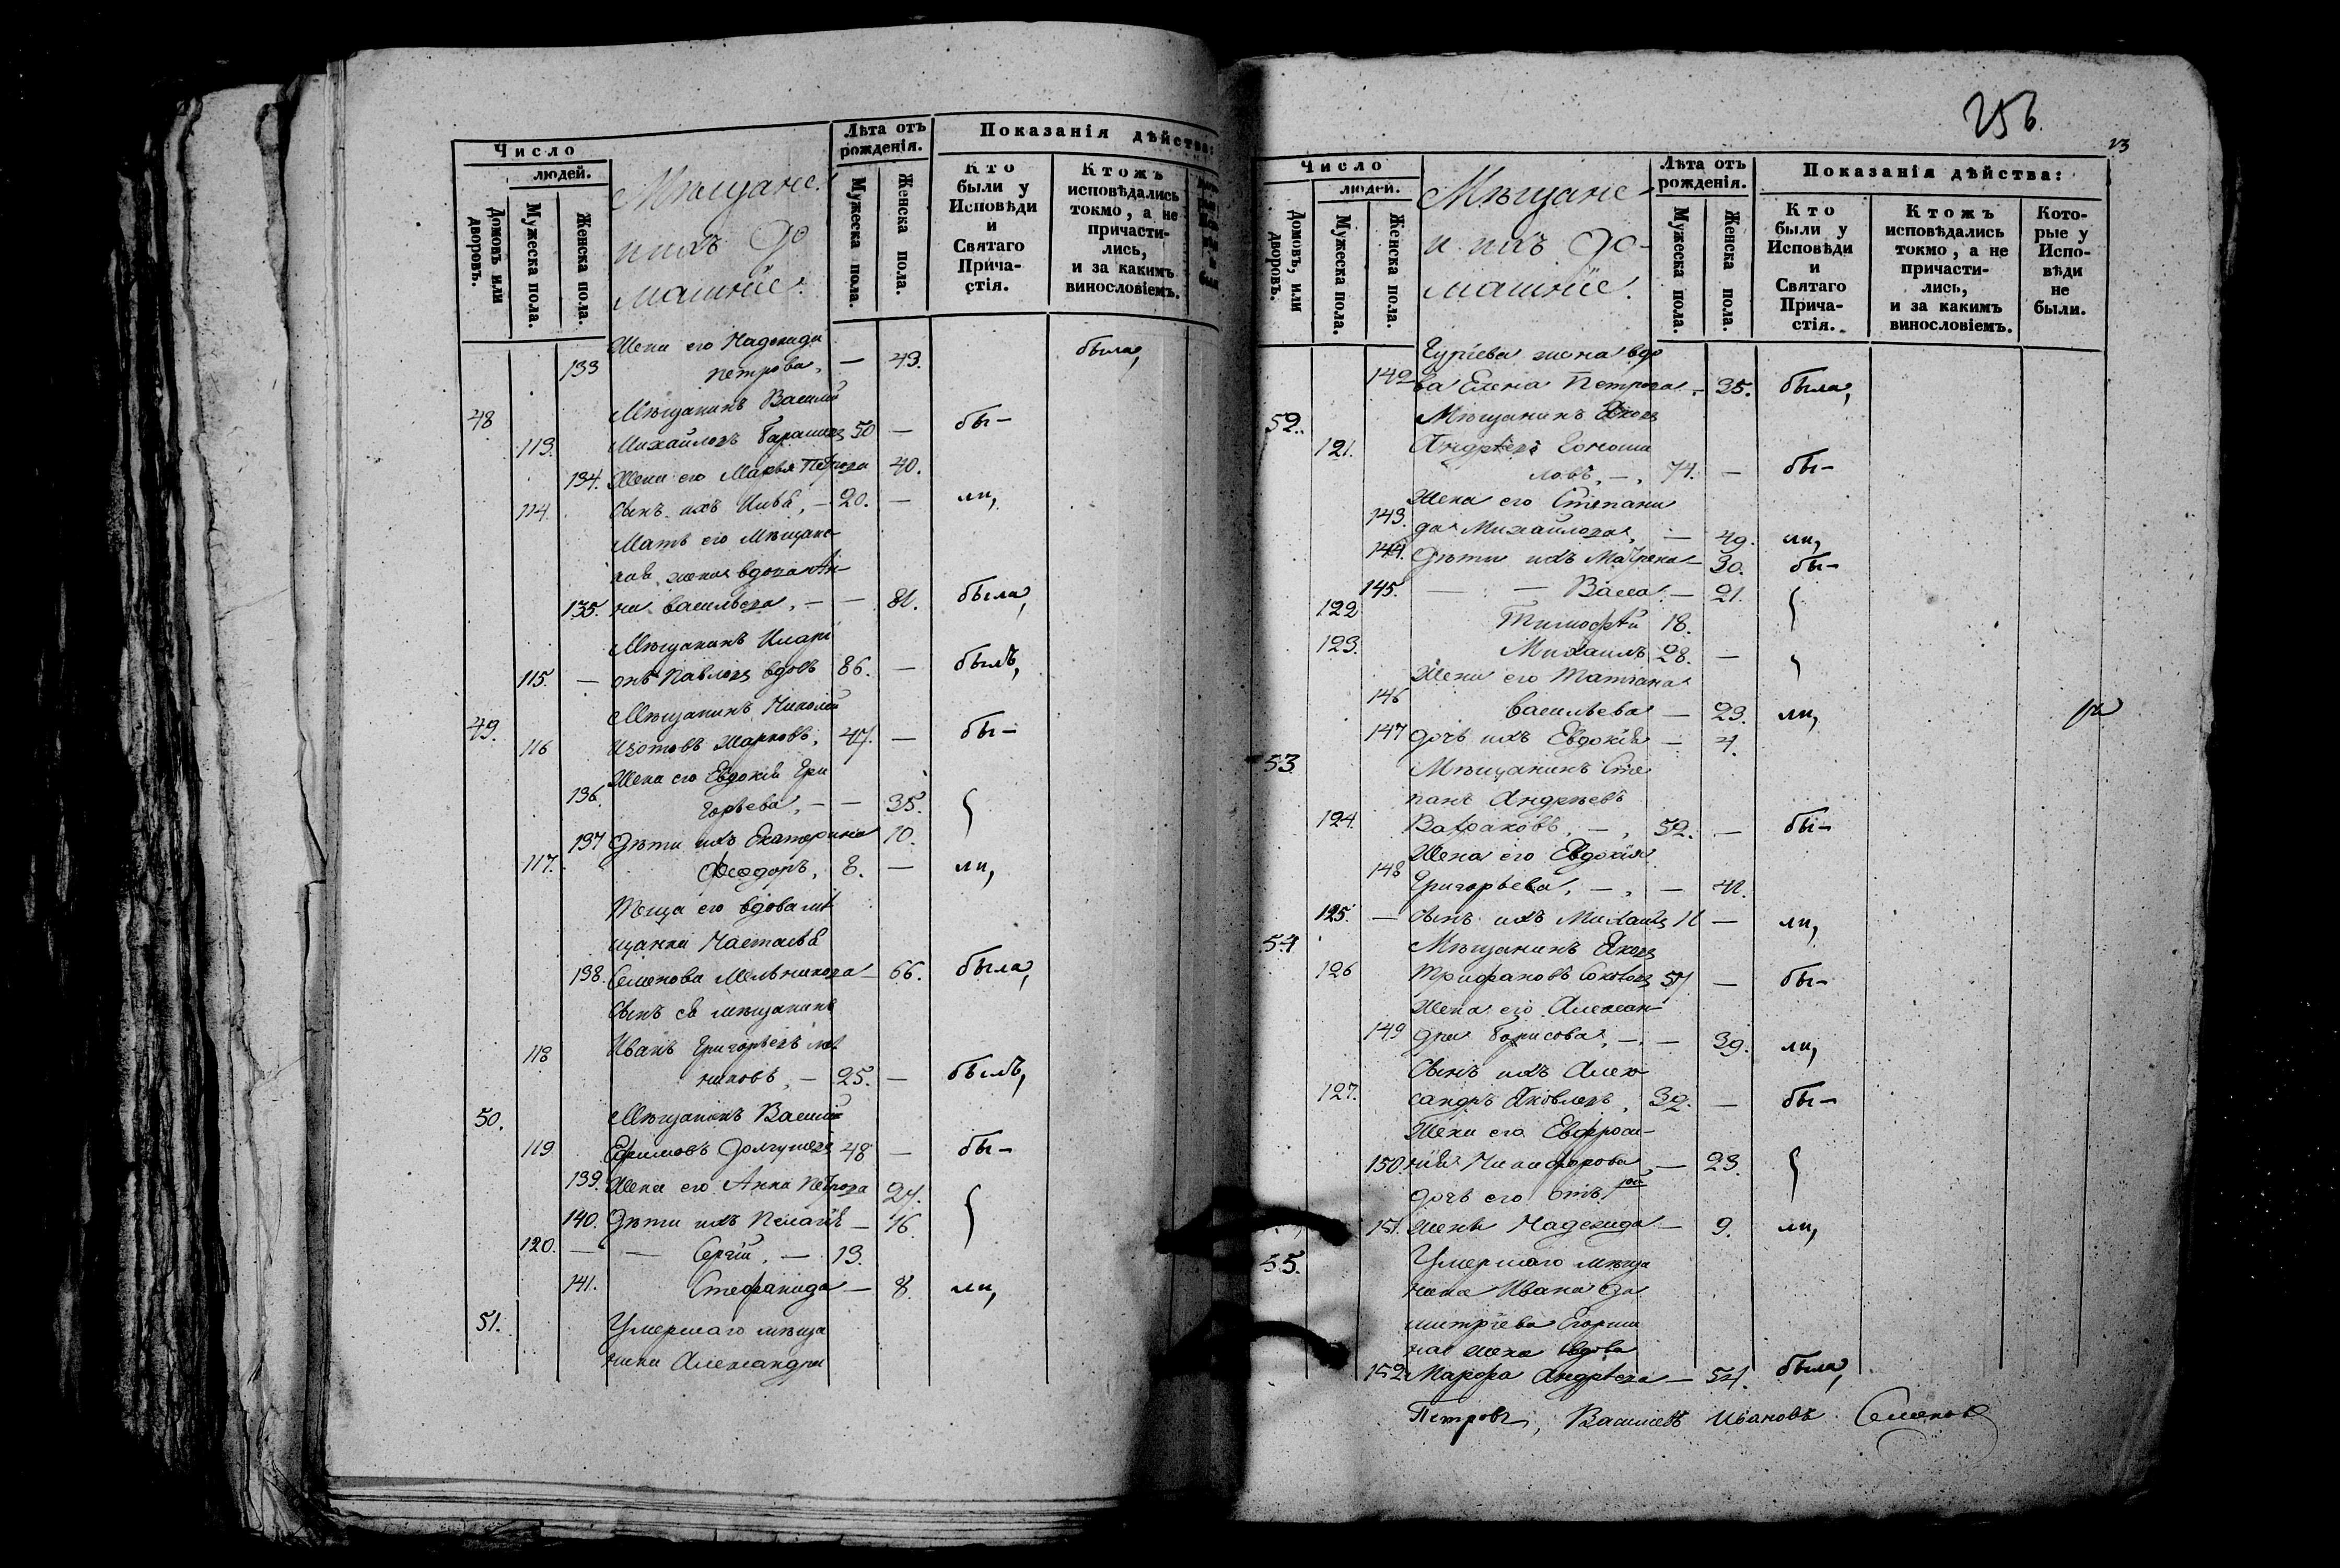 Число
людей.
Домовъ или дворовъ.
Мужеска пола.
Женска пола.
Мѣщане
и ихъ До
машніе.
Лѣта отъ рожденія.
Мужеска пола.
Женска пола.
Показанія дѣйства:
Кто были у Исповѣди и Святаго Причастія.
Ктожъ исповѣдались токмо, а не причастились, и за какимъ винословіемъ.
Жена его Надежда
133 Петрова, — 43. была,
48 Мѣщанинъ Василій
113. Михайловъ 50 — бы-
134. Жена его Марья Петрова 40.
114 Сынъ ихъ Илья, — 20. — ли,
Мать его мѣщанс-
кая жена вдова Ан-
135. на Васильева, — — 81. была,
Мѣщанинъ Илари
115. — онъ Павловъ вдовъ 86. — былъ,
49. Мѣщанинъ Николай
116 Изотовъ Марковъ, 47. — бы-
Жена его Евдокія Гри
136. горьева, — — 35.
137 Дѣти ихъ Екатерина 10.
117. Ѳеодоръ, 8. — ли,
Теща его вдова мѣ
щанка Настасья
138. Семенова Мельникова — 66. была,
Сынъ ея мѣщанинъ
118 Иванъ Григорьевъ Мел
никовъ, — 25. — былъ,
50. Мѣщанинъ Василій
119 Ефимовъ Долгушевъ 48 — бы-
139. Жена его Анна Петрова 24.
140. Дѣти ихъ Пелагія — 16.
120. — — Сергій, — 13.
141. Стефанида — 8. ли,
51. Умершаго мѣща
нина Александра
256.
23
Число
людей.
Домовъ, или дворовъ.
Мужеска пола.
Женска пола.
Мѣщане
и ихъ До-
машніе.
Лѣта отъ рожденія.
Мужеска пола.
Женска пола.
Показанія дѣйства:
Кто были у Исповѣди и Святаго Причастія.
Ктожъ исповѣдались токмо, а не причастились, и за какимъ винословіемъ.
Которые у Исповѣди не были.
Гуріева жена вдо
142 ва Елена Петрова — 35. была,
52. Мѣщанинъ Яковъ
121. Андрѣевъ
ловъ, —, 74. — бы-
Жена его Степани
143. да Михайлова, — 49. ли,
144. Дѣти ихъ Матрена — 30. бы-
145. — — Васса — 21.
122 Тимофѣй 18.
123. Михаилъ 28. —
Жена его Татіана
146 Васильева — 23. ли,
147 Дочь ихъ Евдокія — 4.
53 Мѣщанинъ Сте
панъ Андреевъ
124. Ватраковъ, —, 52. — бы-
148 Жена его Евдокія
Григорьева, —, — 42
125. — Сынъ ихъ Михаилъ 11 — ли,
54 Мѣщанинъ Яковъ
126 Трифановъ Соколовъ 57 — бы-
Жена его Алексан-
149 дра Борисова, —, — 39. ли,
Сынъ ихъ Алек
127. сандръ Яковлевъ, 32. — бы-
Жена его Евфроси-
150. нія Никифорова, — 23.
Дочь его отъ 1ой
151. жены Надежда — 9. ли,
55. Умершаго мѣща
нина Ивана Ди
митріева
на жена вдова
152 Марфа Андрѣева — 54. была,
Петровъ, Василій Ивановъ Семенов